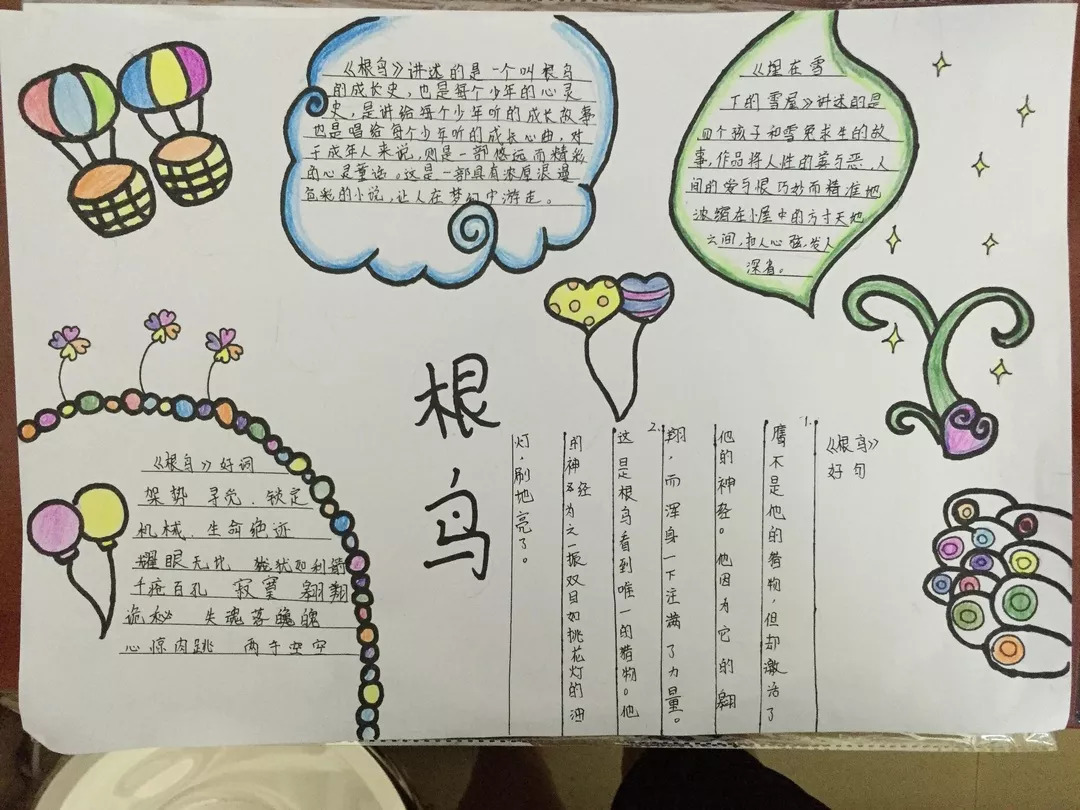 《根鸟》讲述的是一个叫根鸟
的成长史，也是每个少年的心灵
史，是讲给每个少年听的成长故事
也是唱给每个少年听的成长心曲，对
于成年人来说，则是一部悠远而精彩
的心灵童话。这是一部具有浓厚浪漫
色彩的小说，让人在梦幻中游走。
《埋在雪
下的雪屋》讲述的是
四个孩子和雪兔求生的故
事，作品将人性的善与恶，人
间的爱与恨巧妙而精准地
浓缩在小屋中的方寸天地
之间，扣人心弦，发人
深省。
根鸟
《根鸟》好词
架势 寻觅、锁定
机械、生命绝迹
耀眼无比 犹如利箭
千疮百孔 寂寞 翱翔
诡秘 失魂落魄
心惊肉跳 两手空空
《根鸟》
好句
1.鹰不是他的猎物，但却激活了
他的神经。他因为它的翱
翔，而浑身一下注满了力量。
2.这是根鸟看到唯一的猎物。他
的神经为之一振双目如挑花灯的油
灯，刷地亮了。